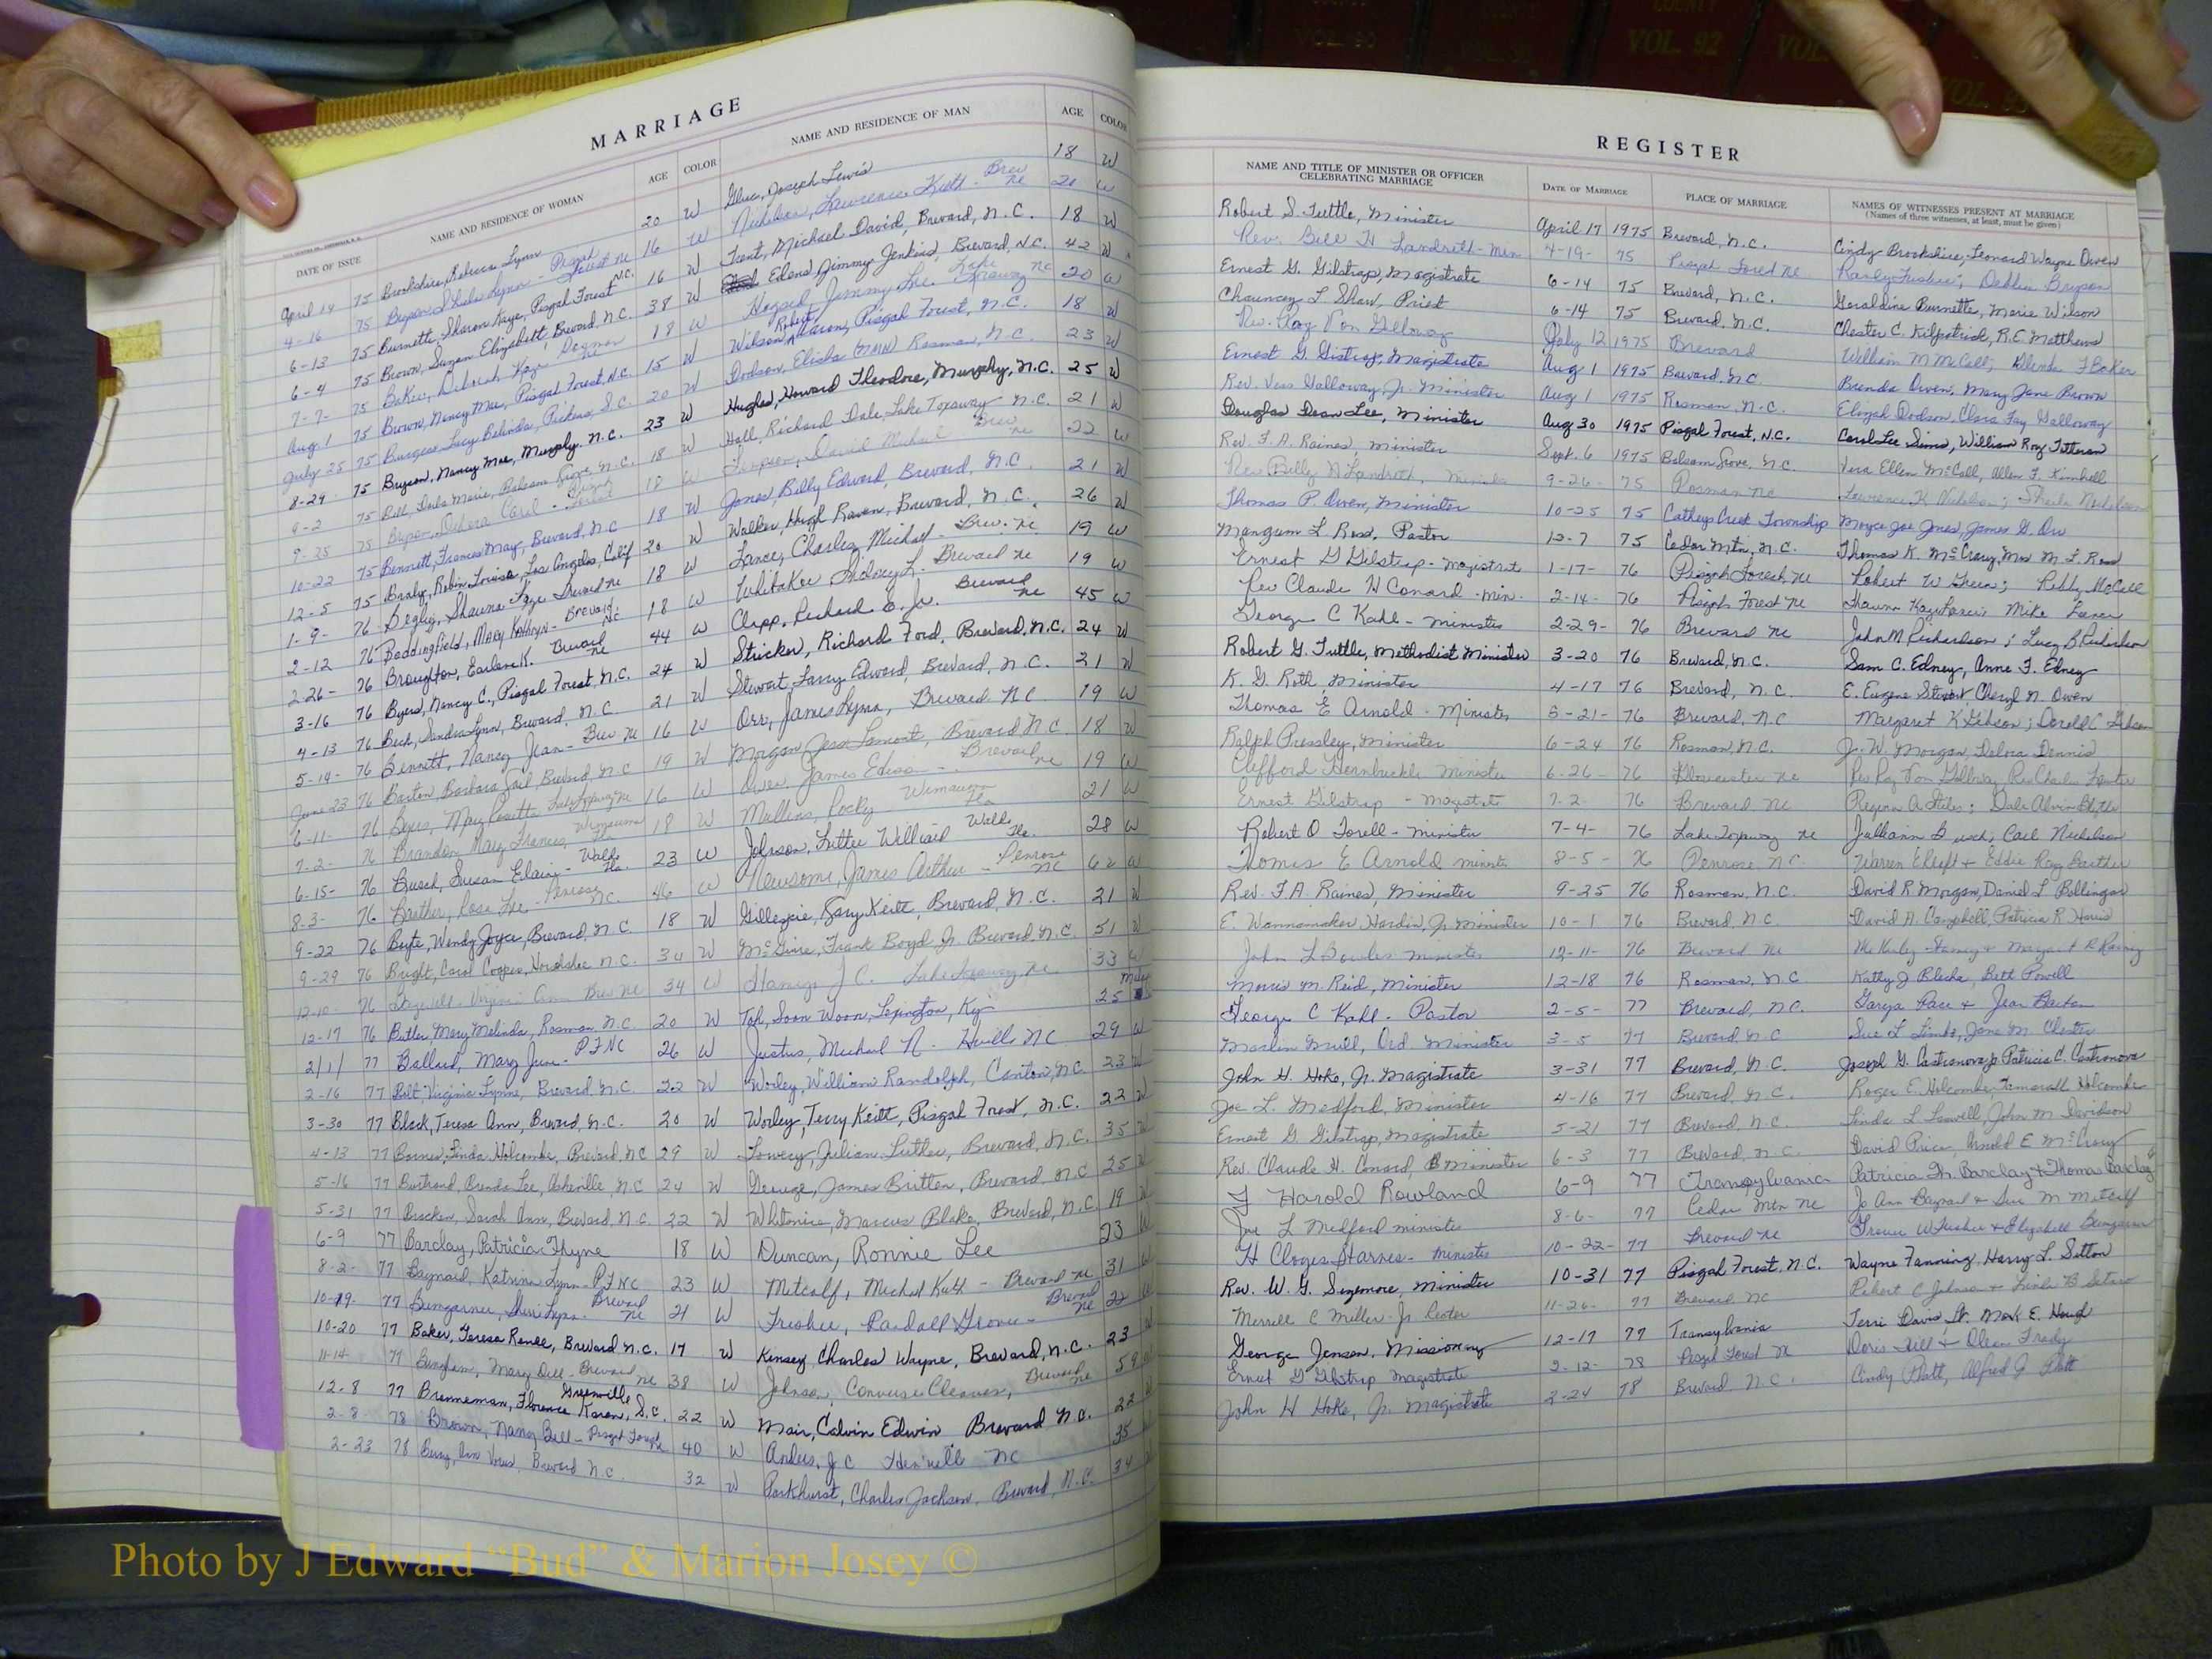 MARRIAGE
DATE OF ISSUE NAME AND RESIDENCE OF WOMAN AGE COLOR NAME AND RESIDENCE OF MAN AGE COLOR
April 14 75 Brookshire, Rebecca Lynn 20 W Joseph Lewis 18 W
4-16 75 Bryson Sheila Lynn - Pisgah Forest NC 16 W Nicholson, Lawrence Keith - Brev NC 20 W
6-13 75 Burnette, Sharon Kaye, Pisgah Forest N.C. 16 W Trent, Michael David, Brevard, N.C. 18 W
6-4 75 Brown, Susan Elizabeth Brevard, N.C. 38 W Edens, Jimmy Jenkins, Brevard, N.C. 42 W
7-7- 75 Baker, Deborah Kaye, NC 18 W Hogsed, Jimmy Lee - Lake Toxaway NC 20 W
Aug 1 75 Brown, Nancy Mae, Pisgah Forest, N.C. 15 W Wilson, Robert Aaron, Pisgah Forest, N.C. 18 W
July 25 75 Burgess Lucy Belinda, Pickens, S.C. 20 W Dodson, Elisha (NMN) Rosman, N.C. 23 W
8-29 75 Bryson, Nancy Mae, Murphy, N.C. 23 W Hughes, Howard Theodore, Murphy, N.C. 25 W
9-2 75 Ball, Doris Marie, Balsam Grove, N.C. 18 W Hall, Richard Dale, Lake Toxaway N.C. 21 W
9-25 75 Bryson, Debera Carol - Pisgah Forest 18 W David Michael Brev NC 22 W
10-22 75 Bennett, Frances May, Brevard, N.C 18 W Jones, Billy Edward, Brevard, N.C 21 W
12-5 75 Braly, Robin Louise, Los Angeles, Calif 20 W Walker, Hugh Raven, Brevard, N.C. 26 W
1-9- 76 Begley, Shauna Faye Brevard NC 18 W Lance, Charles Michael - Brev. NC 19 W
2-12 76 Beddingfield, Mary Kathryn - Brevard NC 18 W Whitaker Sidney L. - Brevard NC 19 W
2-26- 76 Broughton, Earlene K. Brevard NC 44 W Clapp, Richard E. Jr. Brevard NC 45 W
3-16 76 Byers, Nancy C., Pisgah Forest, N.C. 24 W Stricker, Richard Ford, Brevard, N.C. 24 W
4-13 76 Beck, Sandra Lynn, Brevard, N.C 21 W Stewart, Larry Edward, Brevard, N.C. 21 W
5-14- 76 Bennett, Nancy Jean - Brev NC 16 W Orr, James Lynn, Brevard NC 19 W
June 23 76 Barton, Barbara Gail Brevard, N.C 19 W Morgan, Jess Lamont, Brevard N.C. 18 W
6-11- 76 Byers, Mary Rosetta Lake Toxaway NC 16 W Owen, James Edison - Brevard NC 19 W
7-2- 76 Brandon, Mary Frances, Wimauma 18 W Mullins, Rocky Wimauma Fla 21 W
6-15- 76 Busch, Susan Elaine - Fla. 23 W Johnson, Luther Williard Fla. 28 W
8-3- 76 Barther, Rose Lee - Penrose N.C. 46 W Newsome, James Arthur - Penrose NC 62 W
9-22 76 Byte, Wendy Joyce, Brevard, N.C. 18 W Gillespie, Gary Keith, Brevard, N.C. 21 W
9-29 76 Bright, Carol Cooper, N.C. 34 W McGuire, Frank Boyd Jr. Brevard, N.C. 51 W
12-10- 76 Virginia Ann Brev NC 34 W J.C. Lake Toxaway NC 33 W
12-17 76 Butler, Mary Melinda, Rosman N.C. 20 W Toh, Soon Woon, Lexington, Ky 25
2/1/ 77 Ballard, Mary June - P F NC 26 W Justus, Michael N. H'ville NC 29 W
2-16 77 Bolt, Virginia Lynne, Brevard, N.C. 22 W Worley, William Randolph, Canton, N.C. 23 W
3-30 77 Black, Teresa Ann, Brevard, N.C. 20 W Worley, Terry Keith, Pisgah Forest, N.C. 22 W
4-13 77 Barnes, Linda Holcombe, Brevard, N.C 29 W Lowery, Julian Luther, Brevard, N.C. 35 W
5-16 77 Bertrand, Brenda Lee, Asheville, N.C 24 W George, James Britten, Brevard, N.C 25 W
5-31 77 Bracken, Sarah Ann, Brevard, N.C. 22 W Whitmire, Marcus Blake, Brevard, N.C. 19 W
6-9 77 Barclay, Patricia Thyne 18 W Duncan, Ronnie Lee 23 W
8-2- 77 Baynard, Katrina Lynn - P F NC 23 W Metcalf, Michael Keith - Brevard NC 31 W
10-19- 77 Bumgarner, Sheri Lynn - Brevard NC 21 W Frisbee, Randall Grover - Brevard NC 22 W
10-20 77 Baker, Teresa Renee, Brevard N.C. 17 W Kinsey, Charles Wayne, Brevard, N.C. 23 W
11-14 77 Bingham, Mary Dell - Brevard NC 38 W Johnson, Converse Cleaves, Brevard NC 59 W
12-8 77 Brenneman, Florence Karen, Greenville S.C. 22 W Mair, Calvin Edwin Brevard N.C. 22 W
2-8- 78 Brown, Nancy Bell - Pisgah Forest NC 40 W Anders, J C Hen'ville NC 35 W
2-23 78 Berry, Ann Brevard N.C. 32 W Parkhurst, Charles Jackson, Brevard, N.C. 34 W
REGISTER
NAME AND TITLE OF MINISTER OR OFFICER CELEBRATING MARRIAGE DATE OF MARRIAGE PLACE OF MARRIAGE NAMES OF WITNESSES PRESENT AT MARRIAGE
(Names of three witnesses, at least, must be given)
Robert G. Tuttle, Minister April 17 1975 Brevard, N.C. Cindy Brookshire, Leonard Wayne Owen
Rev. Bill H Landreth - Min 4-19- 75 Pisgah Forest NC Randy Frisbee; Debbie Bryson
Ernest G. Gilstrap, Magistrate 6-14 75 Brevard, N.C. Geraldine Burnette, Marie Wilson
Chauncey L Shaw, Priest 6-14 75 Brevard, N.C. Chester C. Kilpatrick, R.C. Matthews
Rev. Roy Von Galloway July 12 1975 Brevard William M McCall; Glenda F Baker
Ernest G. Gilstrap, Magistrate Aug 1 1975 Brevard, N.C. Brenda Owen, Mary Jane Brown
Rev. Vess Galloway, Jr. Minister Aug 1 1975 Rosman, N.C. Elizah Dodson, Clara Fay Galloway
Douglas Dean Lee, Minister Aug 30 1975 Pisgah Forest, N.C. Carol Lee Sims, William Roy Titterson
Rev. F. A. Raines, Minister Sept. 6 1975 Balsam Grove, N.C. Vera Ellen McCall, Allen F. Kimbell
Rev Billy H Landreth, Minister 9-26- 75 Rosman NC Lawrence K Nicholson; Sheila Nicholson
Thomas P. Owen, Minister 10-25 75 Catheys Creek Township Moyce Joe Jones, James G. Orr
Mangum L. Ross, Pastor 12-7 75 Cedar Mtn, N.C. Thomas K. McCrary, Mrs M. L. Ross
Ernest G Gilstrap - Magistrate 1-17- 76 Pisgah Forest, NC Robert W Green; Robby McCall
Rev Claude H Conard - Min. 2-14- 76 Pisgah Forest NC Mike Lance
George C Kahl - Minister 2-29- 76 Brevard NC John M Richardson; Lucy B Richardson
Robert G. Tuttle, Methodist Minister 3-20 76 Brevard, N.C. Sam C. Edney, Anne F. Edney
K. G. Roth, Minister 4-17 76 Brevard, N.C. E. Eugene Stewart, Cheryl N. Owen
Thomas E Arnold - Minister 5-21- 76 Brevard, N.C Margaret K Gibson; Gibson
Ralph Pressley, Minister 6-24 76 Rosman, N.C. J. W. Morgan, Delora Dennis
Clifford Hornbuckle Minister 6-26- 76 Gloucester NC Rev Roy Von Galloway, Rev Charles
Ernest Gilstrap - Magistrate 7-2- 76 Brevard, NC Regena A. Stiles; Dale Alvin
Robert O Torell - Minister 7-4- 76 Lake Toxaway NC Carl Nicholson
Thomas E Arnold Minister 8-5- 76 Penrose N.C. Warren + Eddie Ray Barther
Rev. F. A. Raines, Minister 9-25 76 Rosman, N.C. David R. Morgan, Daniel L Bollinger
E. Wannamaker Hardin, Jr. Minister 10-1 76 Brevard N.C David A. Campbell, Patricia R. Harris
John L Bowles Minister 12-11- 76 Brevard NC
Morris M. Reid, Minister 12-18 76 Rosman, N.C Kathy J Blecha, Bett Powell
George C Kahl - Pastor 2-5- 77 Brevard, N.C. Garya Pace + Jean Barton
Ord. Minister 3-5 77 Brevard N.C Sue L Jane M. Chester
John H. Hoke, Jr. Magistrate 3-31 77 Brevard, N.C. Joseph G. Castronova, Jr Patricia C. Castronova
Joe L. Medford, Minister 4-16 77 Brevard, N.C. Roger E. Holcombe, Holcombe
Ernest G Gilstrap, Magistrate 5-21 77 Brevard, N.C. Linda L Laswell, John M Davidson
Rev. Claude H. Conard, Minister 6-3 77 Brevard, N.C. David Price, Arnold E McCrary
F Harold Rowland 6-9 77 Transylvania Patricia Th. Barclay + Thomas Barclay
Joe L Medford Minister 8-6- 77 Cedar Mtn NC Jo Ann Baynard + Sue M Metcalf
H Cloyes Starnes - Minister 10-22- 77 Brevard NC Grover W Frisbee + Elizabeth Bumgarner
Rev. W. G. Sizemore, Minister 10-31 77 Pisgah Forest, N.C. Wayne Fanning, Harry L. Sitton
Merrell C Miller - Jr Rector 11-26- 77 Brevard NC Robert C Johnson + Linda B
George Jensen, Missionary 12-17 77 Transylvania Terri Davis, Mark E. Hand
Ernest G Gilstrap Magistrate 2-12- 78 Pisgah Forest NC Doris Hill +
John H Hoke, Jr. Magistrate 2-24 78 Brevard N.C. Cindy Platt, Alfred J Platt
VOL. 92
Photo by J Edward “Bud” & Marion Josey ©